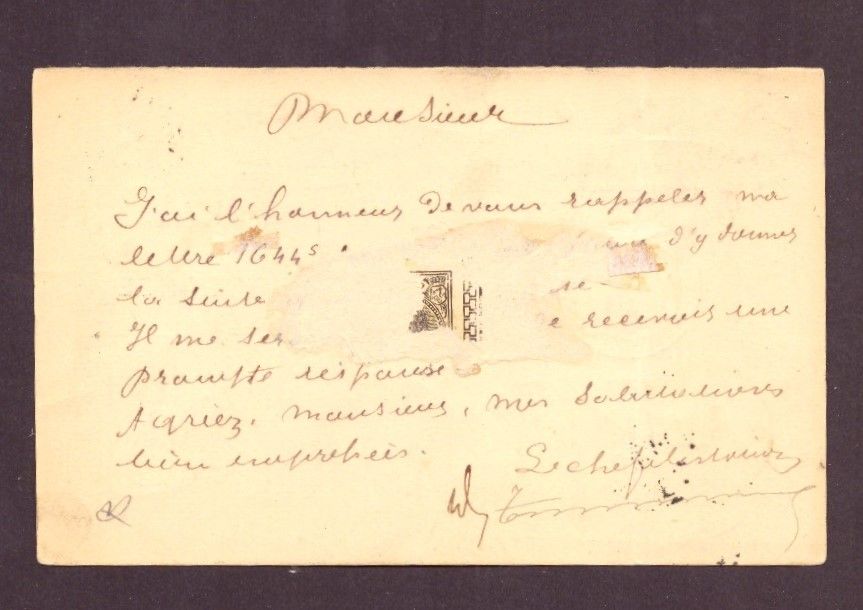 Monsieur
J'ai l'honneur de vous rappeler ma
lettre 1644s d'y donner
la suite
Il me ser e recevoir une
prompte réponse
Agréez, monsieur, mes salutations
bien empressées.
Le chef de station